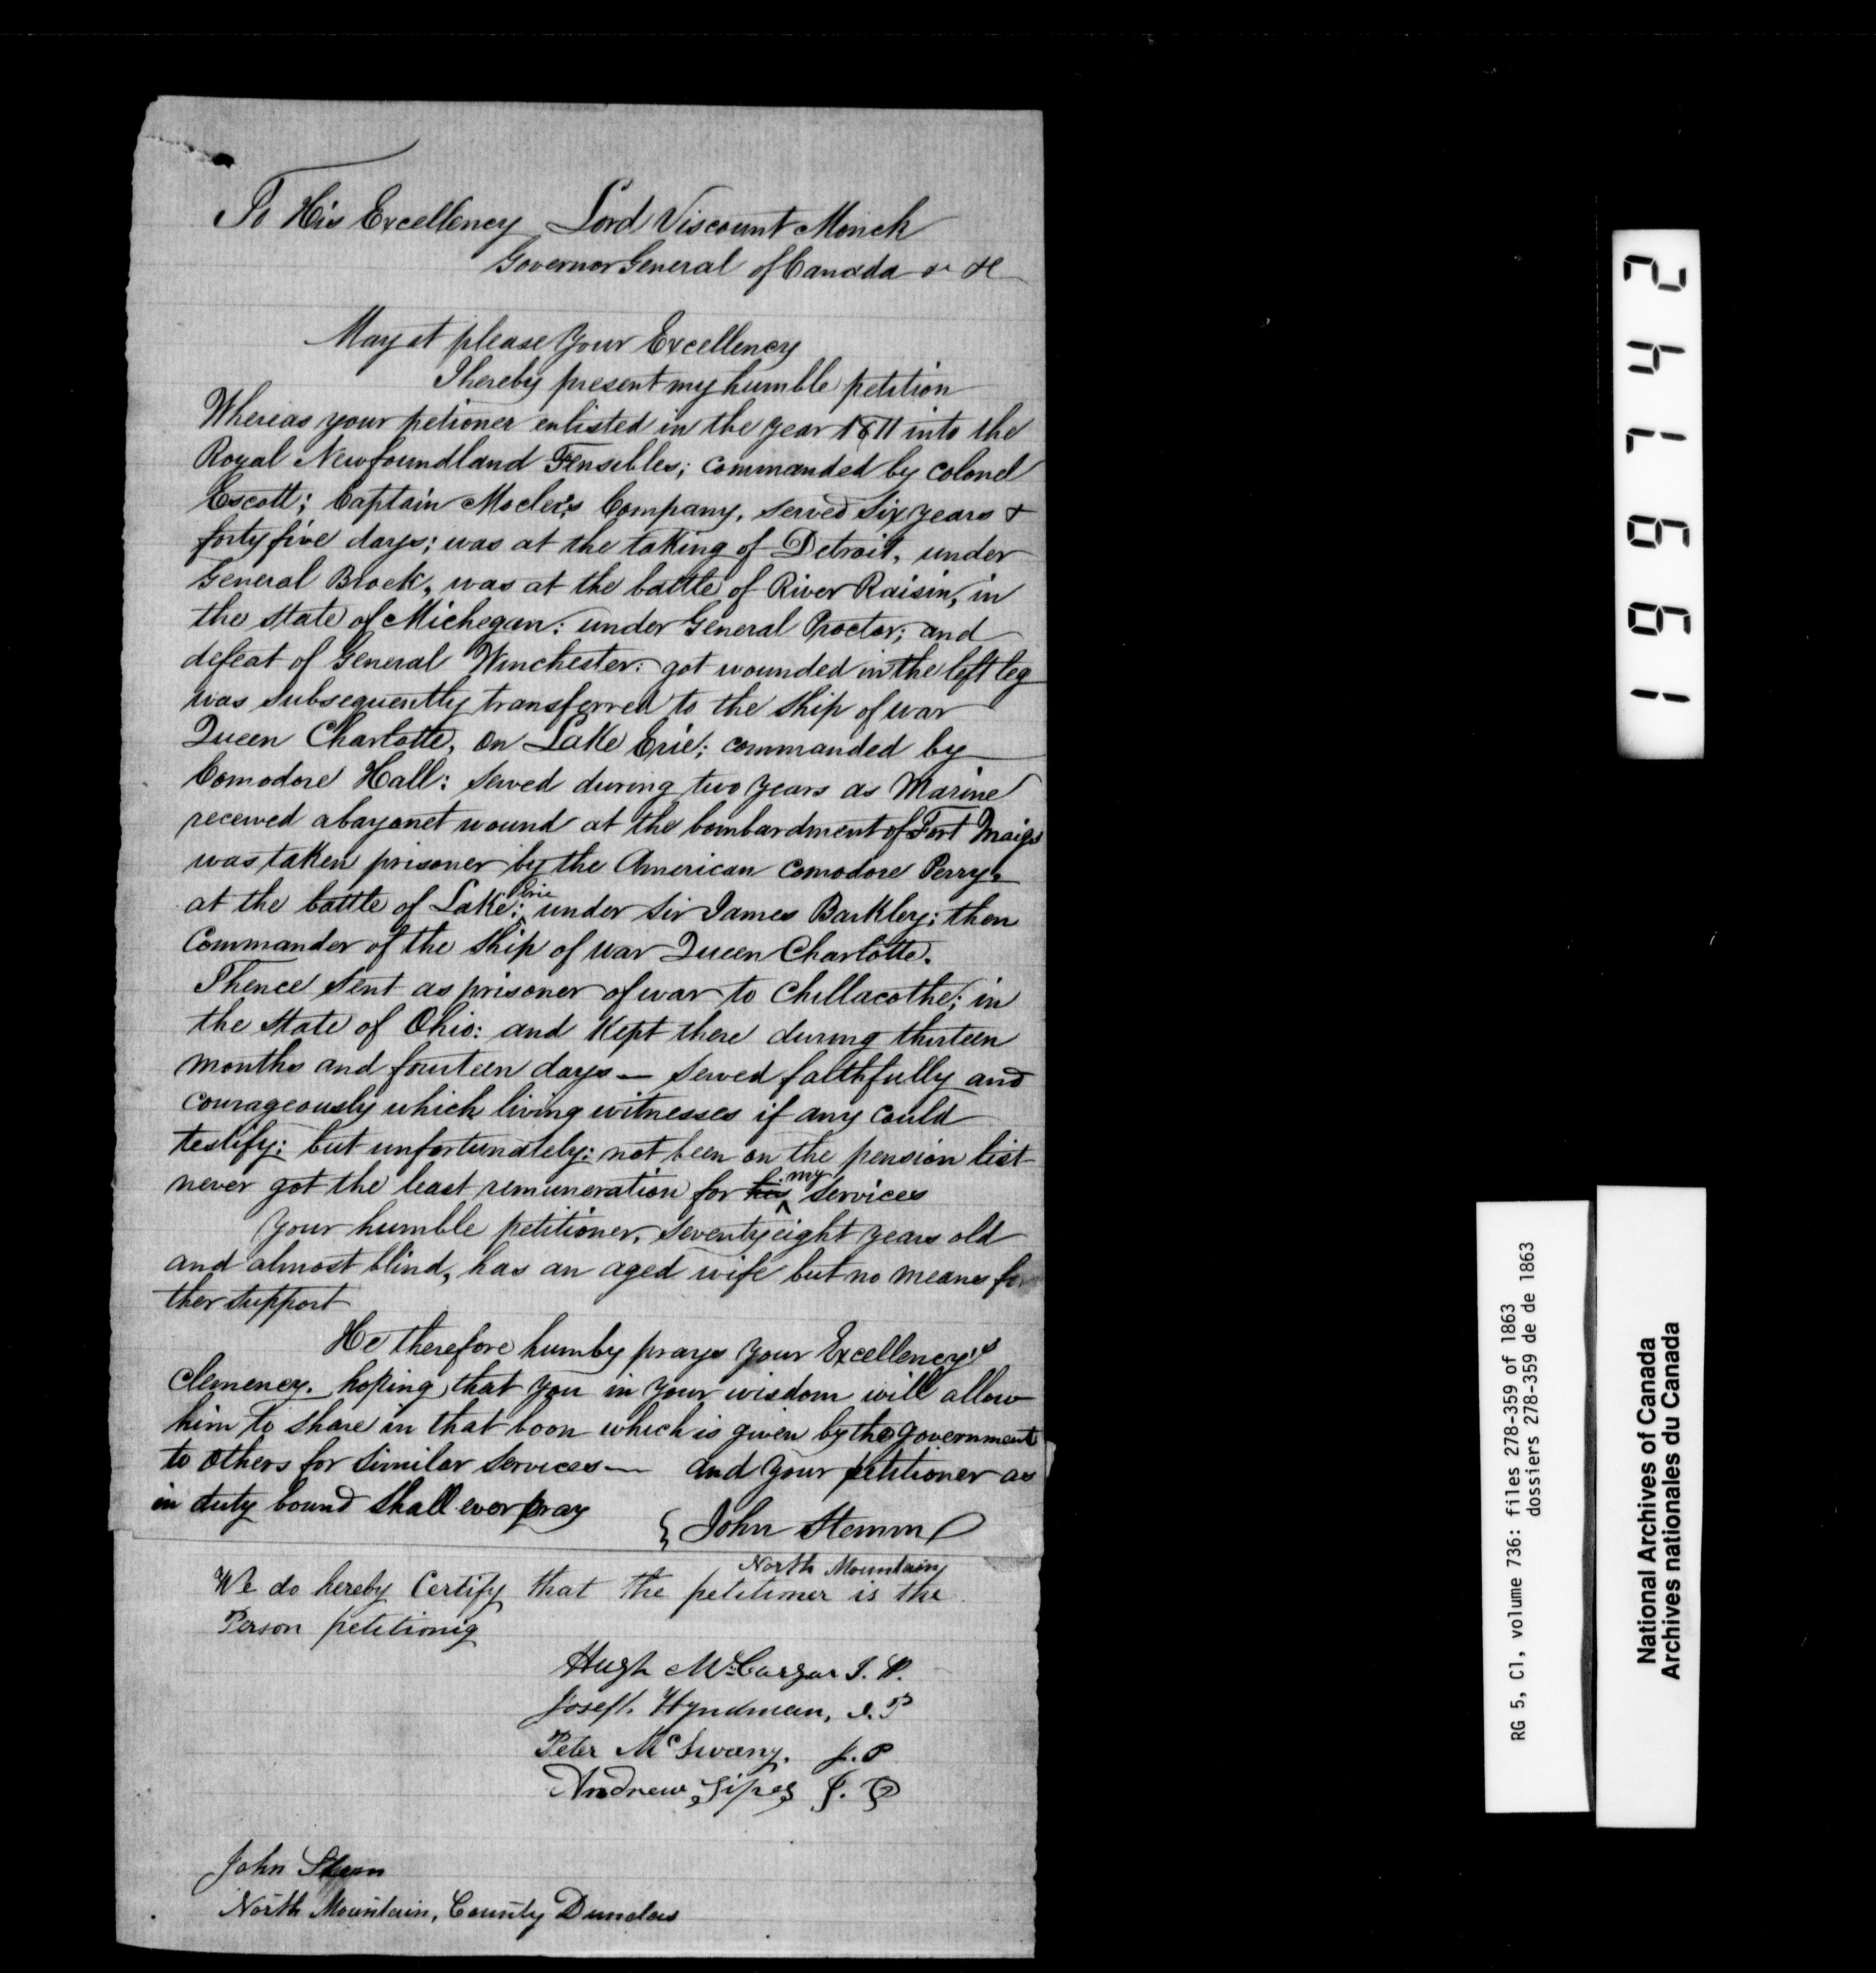 To His Excellency Lord Viscount Monck
Governor General of Canada & &c
May it please Your Excellency
I hereby present my humble petition
Whereas your petioner enlisted in the year 1811 into the
Royal Newfoundland Fensibles; commanded by colonel
Escott; Captain Mocler's Company, served six years &
forty five days; was at the taking of Detroit, under
General Brock, was at the battle of River Raisin, in
the state of Michegan: under General Proctor; and
defeat of General Winchester: got wounded in the left leg
was subsequently transferred to the ship of war
Queen Charlotte, on Lake Erie; commanded by
Comodore Hall: served during two years as Marine
received a bayonet wound at the bombardment of Fort Maigs
was taken prisoner by the American comodore Perry,
at the battle of Lake Erie; under Sir James Barkley; then
Commander of the ship of war Queen Charlotte.
Thence sent as prisoner of war to Chillacothe; in
the state of Ohio: and kept there during thirteen
months and fourteen days — served faithfully and
courageously which living witnesses if any could
testify: but unfortunately: not been on the pension list
never got the least remuneration for his my services
Your humble petitioner, seventy eight years old
and almost blind, has an aged wife but no means for
ther support
He therefore humby prays Your Excellency's
Clemency. hoping that you in your wisdom will allow
him to share in that boon which is given by the government
to others for similar services — and your petitioner as
in duty bound shall ever pray
John Stemm
North Mountain
We do hereby Certify that the petitioner is the
Person petitionig
Hugh McCargar J. P.
Joseph Hyndman, J. P
Peter McSwany. J. P
Andrew Sipes J. P
John Stemm
North Mountain, County Dundas
191742
RG 5, C1, volume 736: files 278-359 of 1863
dossiers 278-359 de de 1863
National Archives of Canada
Archives nationales du Canada